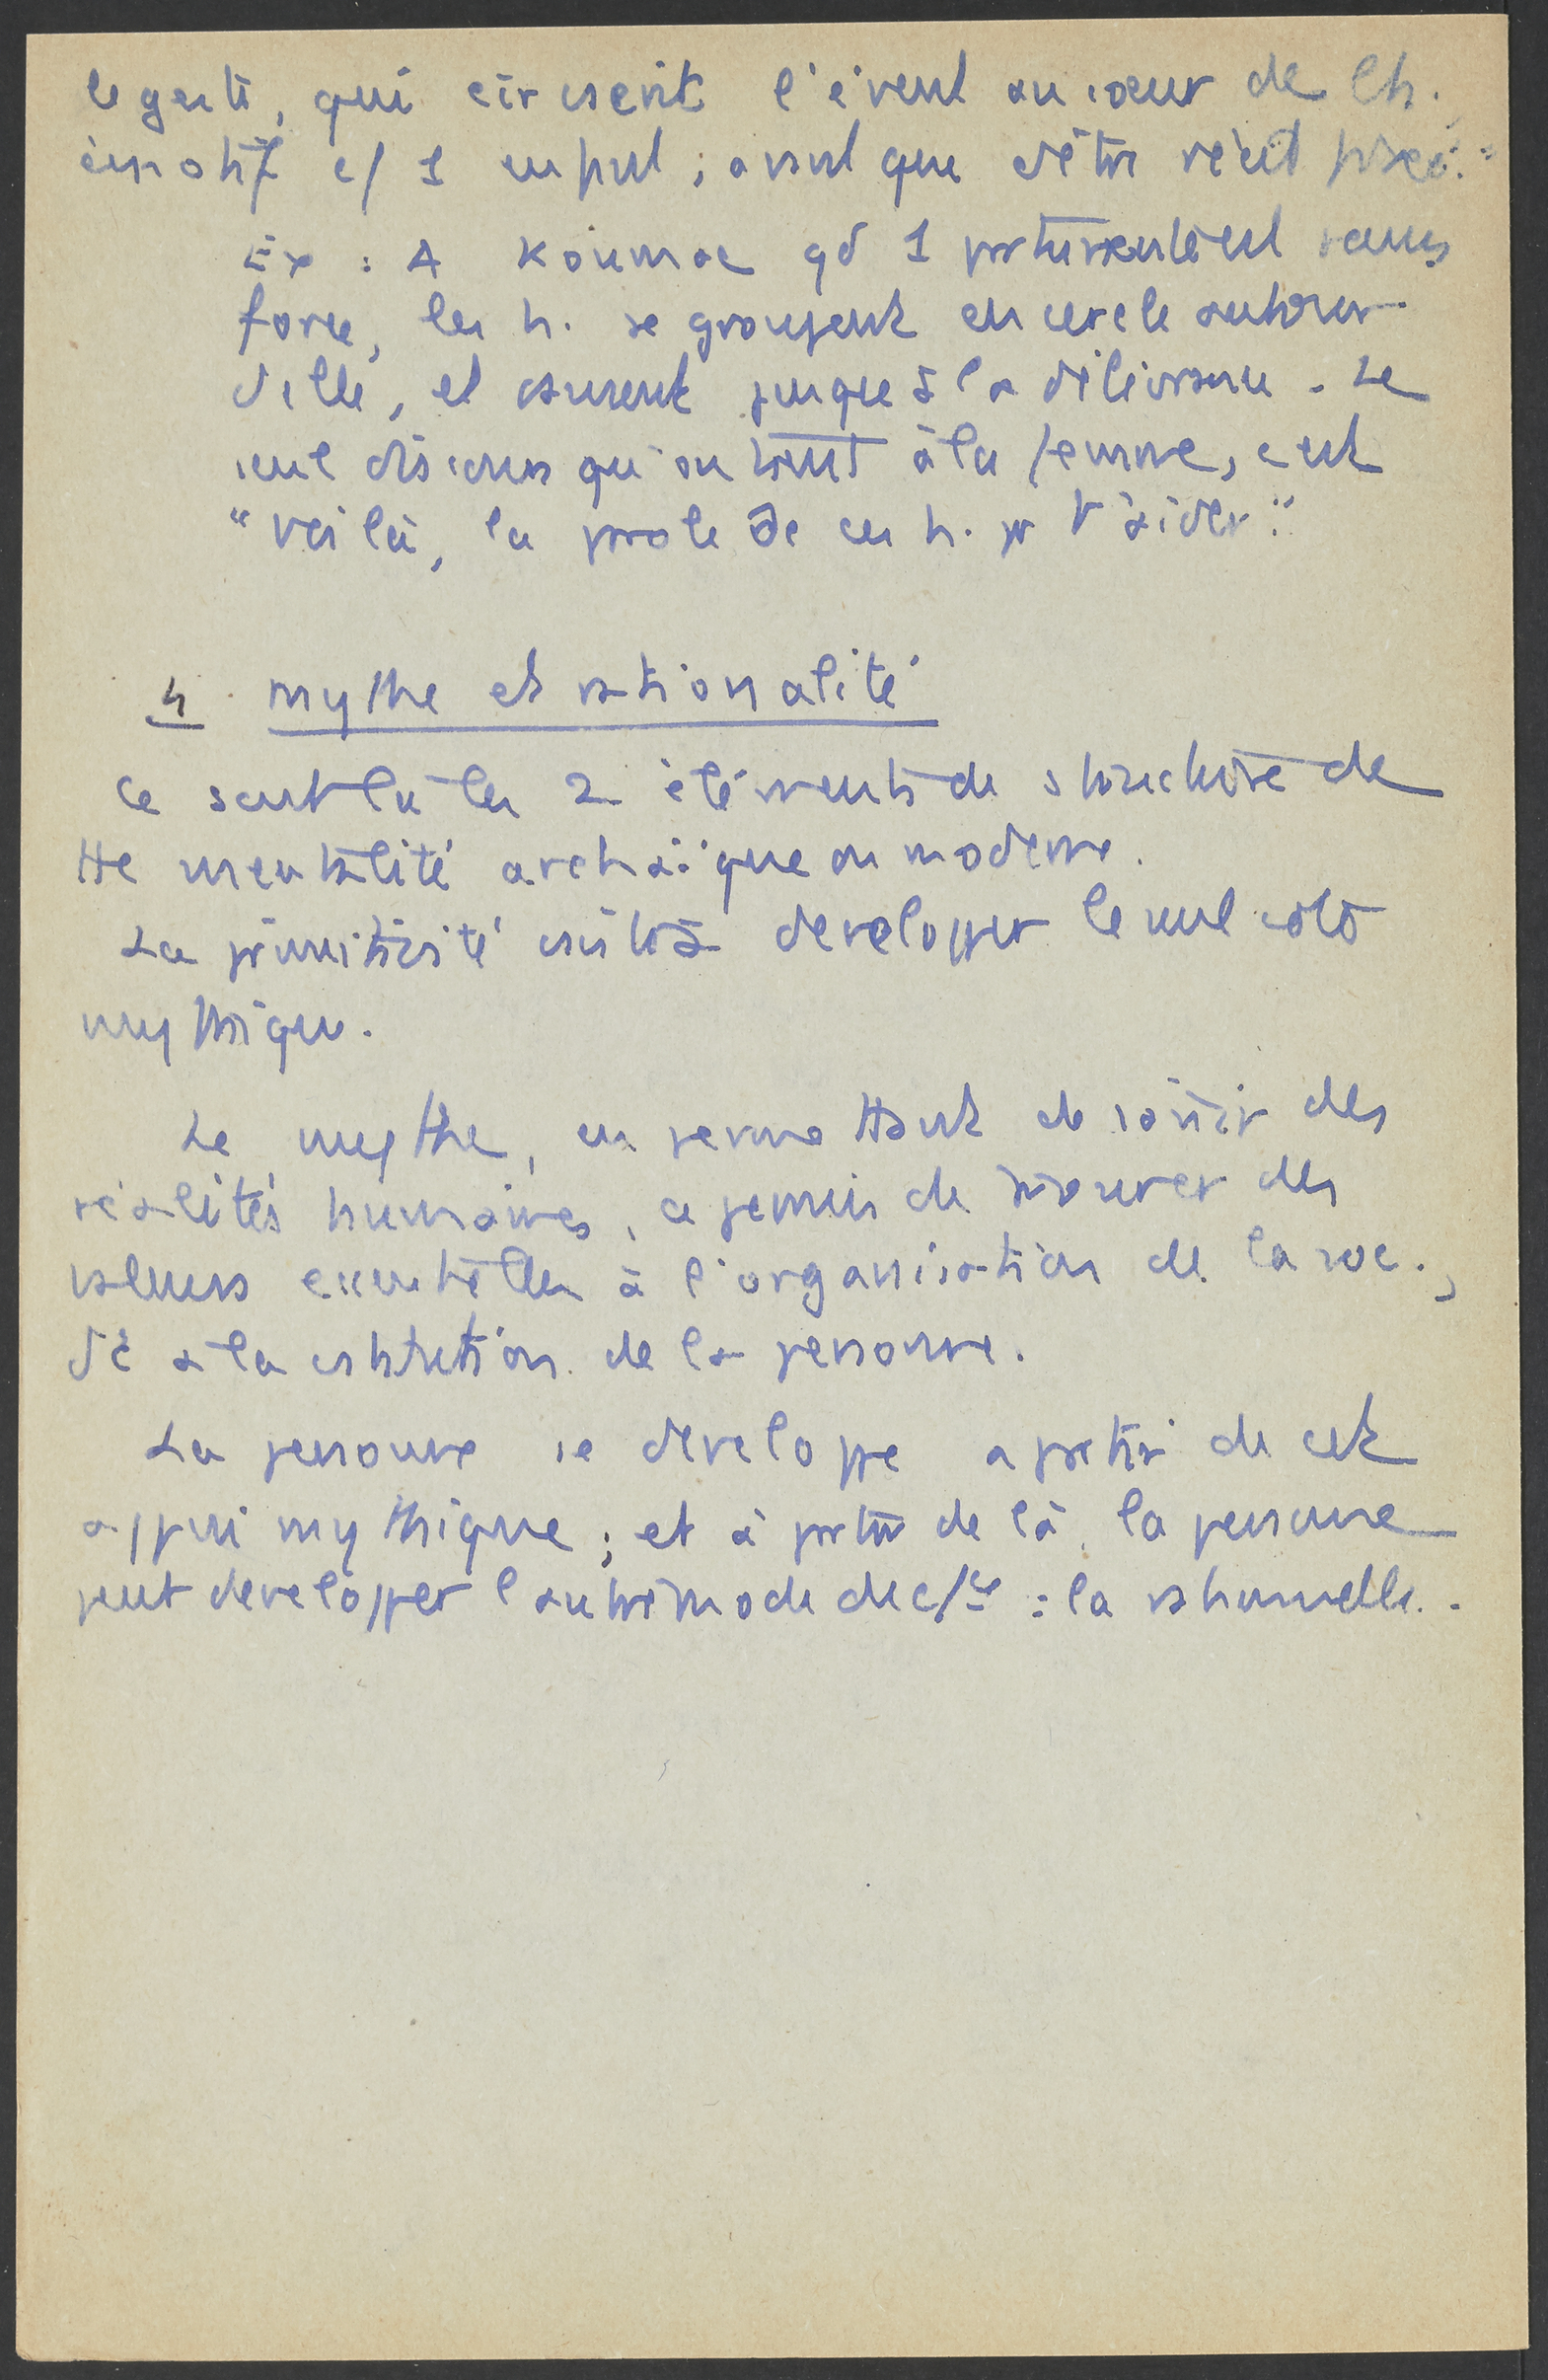 le geste, qui circscrit l'évent au cœur de l'h.
émotif c/ 1 empst ; avant que d'être récit fixé."
Ex : A Koumac qd 1 parturiente est sans
force, les h. se groupent en cercle autour
d'elle, et courent jusque à la délivrance. Le
seul discours qu'on tient à la femme, c'est
"voilà, la parole de ces h. pr t'aider."
4. mythe et rationalité
Ce sont là les 2 éléments de structure de
tte mentalité archaïque ou moderne.
La primitivité csiste à developper le seul coté
mythique.
Le mythe, en permettant de saisir des
réalités humaines, a permis de trouver des
valeurs essentielles à l'organisation de la soc.,
dc a la cstrution de la personne.
La personne se developpe a partir de cet
appui mythique ; et à partir de là, la personne
peut developper l'autre mode de c/ce : la rationnelle.